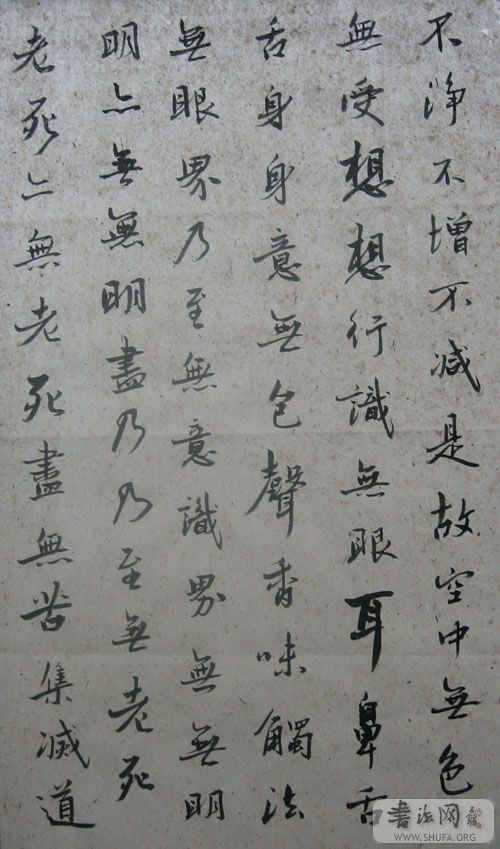 不淨不增不減是故空中無色
無受想想行識無眼耳鼻舌
舌身身意無色聲香味觸法
無眼界乃至無意識界無無明
明亦無無明盡乃乃至無老死
老死亦無老死盡無苦集滅道
書法网
WWW.SHUFA.ORG